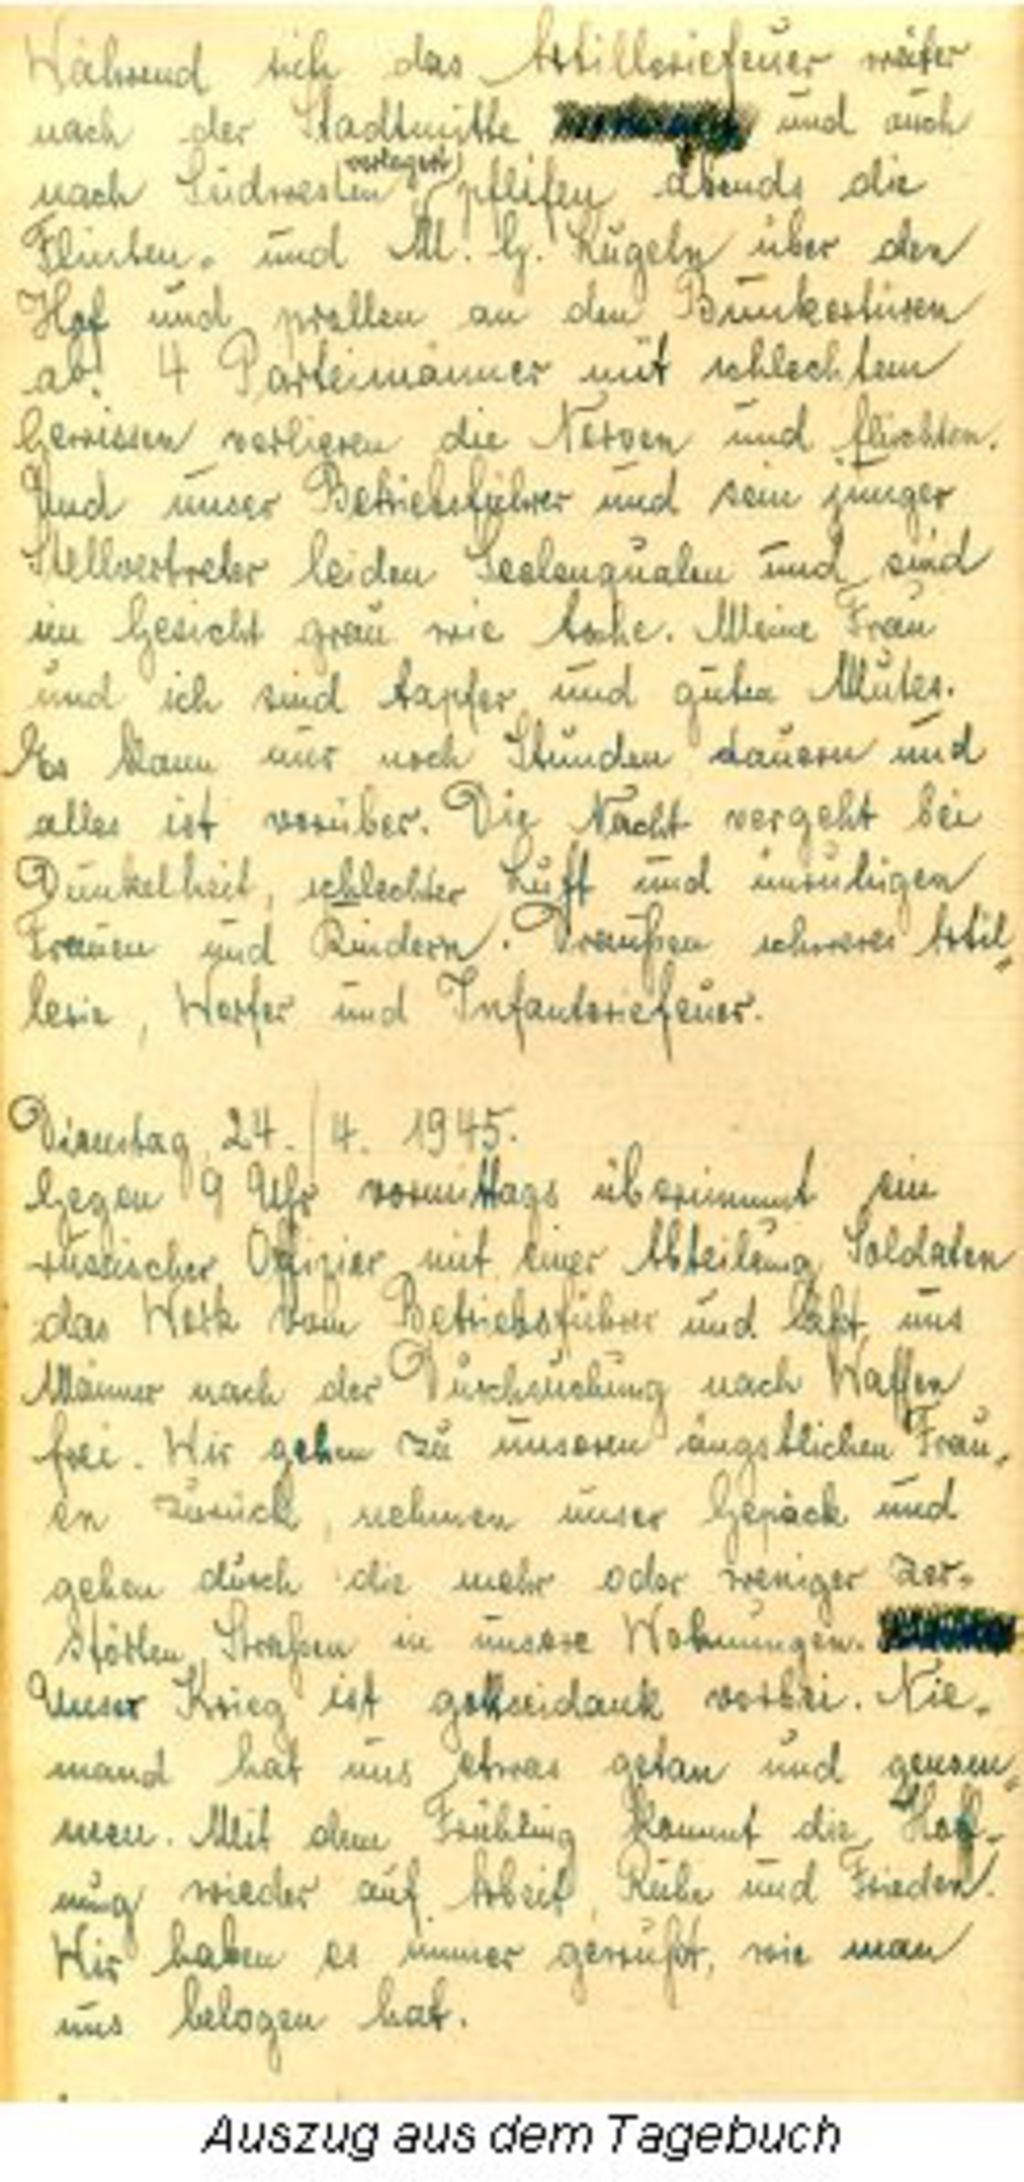 Während sich das Artilleriefeuer weiter
nach der Stadtmitte und auch
verlagert
nach Südwesten pfeifen abends die
Flinten- und M. G. Kugeln über den
Hof und prallen an den Bunkertüren
ab. 4 Parteimänner mit schlechtem
Gewissen verlieren die Nerven und flüchten.
Und unser Betriebsführer und sein junger
Stellvertreter leiden Seelenqualen und sind
im Gesicht grau wie Asche. Meine Frau
und ich sind tapfer und guten Mutes.
Es kann nur noch Stunden dauern und
alles ist vorüber. Die Nacht vergeht bei
Dunkelheit, schlechter Luft und unruhigen
Frauen und Kindern. Draußen schweres Artil-
lerie, Werfer und Infanteriefeuer.
Dienstag, 24./4. 1945.
Gegen 9 Uhr vormittags übernimmt ein
russischer Offizier mit einer Abteilung Soldaten
das Werk vom Betriebsführer und läßt uns
Männer nach der Durchsuchung nach Waffen
frei. Wir gehen zu unseren ängstlichen Frau-
en zurück, nehmen unser Gepäck und
gehen durch die mehr oder weniger zer-
störten Straßen in unsere Wohnungen.
Unser Krieg ist gottseidank vorbei. Nie-
mand hat uns etwas getan und genom-
men. Mit dem Frühling kommt die Hoff-
nung wieder auf Arbeit, Ruhe und Frieden.
Wir haben es immer gewußt, wie man
uns belogen hat.
Auszug aus dem Tagebuch